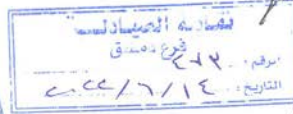 نقابة الصيادلة
فرع دمشق
الرقم: ٤٧٣
التاريخ: ٢٠٢٢/٦/١٤